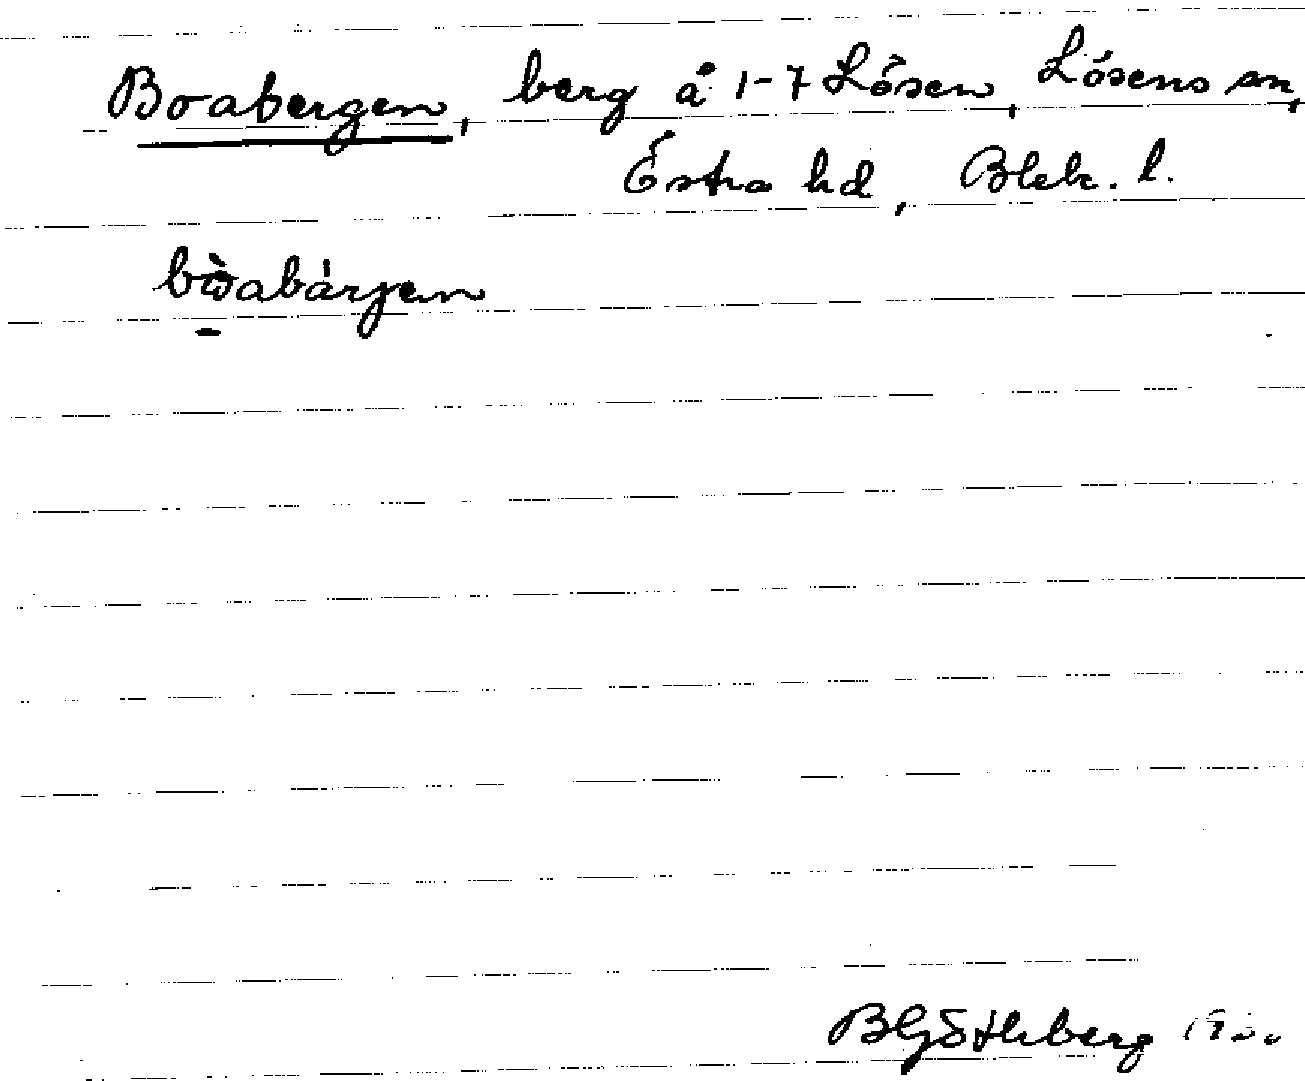 Boabergen, berg å 1-7 Lösen, Lösens sn,
Östra hd, Blek. l.
BGöthberg